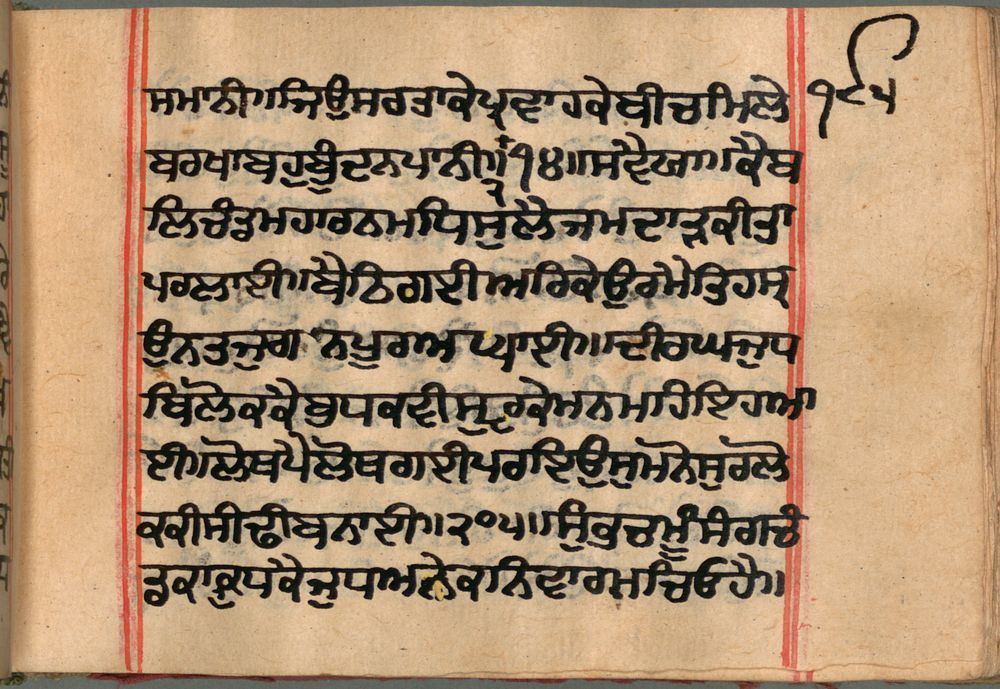 ੧੯੫
ਸਮਾਨੀ॥ਜਿਉਸਰਤਾਕੇਪ੍ਰਵਾਹਕੇਬੀਚਮਿਲੇ
ਬਰਖਾਬਹੁਬੂੰਦਨਪਾਨੀ॥੨੧੪॥ਸਵੈਯਾ॥ਕੈਬ
ਲਿਚੰਡਮਹਾਰਨਮਧਿਸੁਲੈਜਮਦਾੜਕੀਤਾ
ਪਰਲਾਈ॥ਬੈਠਿਗਈਅਰਿਕੇਉਰਮੇਤਿਹਸ੍ਰ
ਉਨਤਜੁਗਨਪੂਰਅਘਾਈ॥ਦੀਰਘਜੁਧ
ਬਿਲੋਕਕੈਬੁਧਕਵੀਸੁਰਕੇਮਨਮਾਹਿਇਹਆ
ਈ॥ਲੋਥਪੈਲੋਥਗਈਪਰਇਉਸੁਮਨੋਸੁਰਲੋ
ਕਕੀਸੀਢੀਬਨਾਈ॥੨੧੫॥ਸੁੰਭਚਮੂੰਸੰਗਚੰ
ਡਕਾਕ੍ਰੁਧਕੈਜੁਧਅਨੇਕਨਿਵਾਰਮਚਿਓਹੈ॥